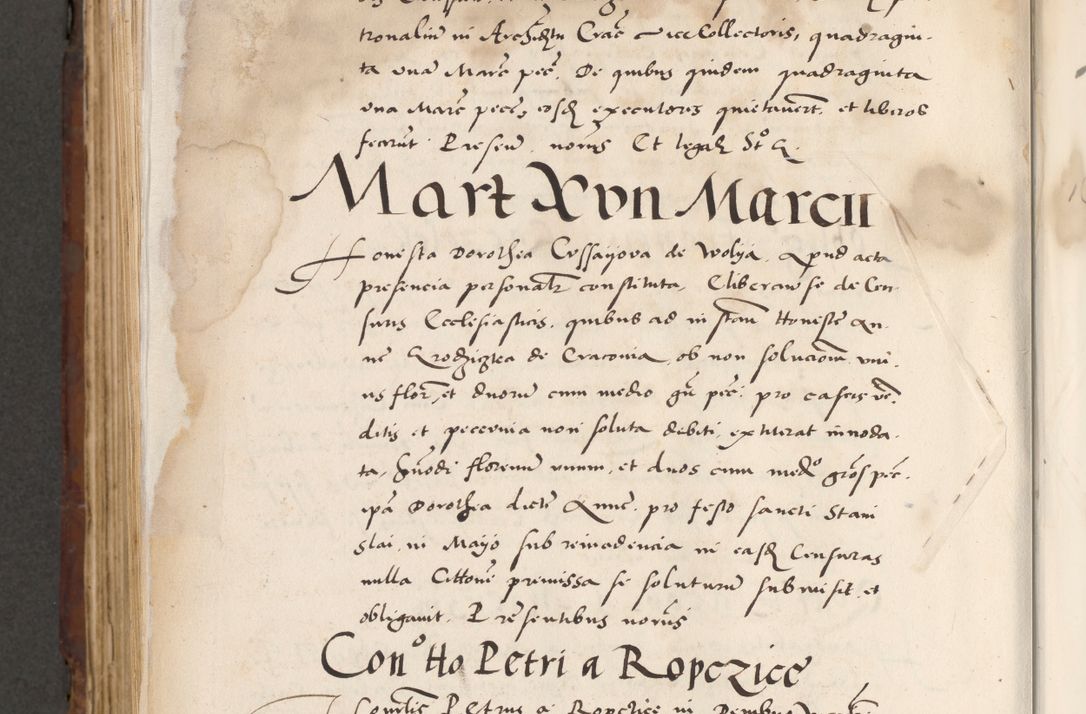 tronaliū in Archidtu Crac̄ viceCollectoris, quadragin-
ta una Marc̄ pec̄. De quibus quidem quadraginta
una Marc̄ pec̄, eosdē executores quietaverūt, et liberos
fecerūt. Presentī. notariis Et legal̄ Sto
Mart Xvii Marcii
Honesta Dorothea Cyssayova de Wolya. Apud acta
presencia personalr̄ constituta, Cliberan̄ se de Cen-
suris Ecclesiasticis. quibus ad instan̄ Honeste An-
ne Grodziczka de Cracovia, ob non solucionē uni-
us flor̄, et duorū cum medio gr̄ pec̄. pro caseis ven̄-
ditis et peccunia non soluta debiti, extiterat innoda-
ta, Hmōdi florenū unum, et duos cum medo gros pec̄.
ip̄a Dorothea dicte Anne. pro festo sancti Stani
slai, in Mayo sub reincidencia in easdē Censuras
nulla Cittone premissa se soluturū submisit, et
obligavit. Presentibus notariis
Cono Ho Petri a Ropczice
Petrus a Ropczice in